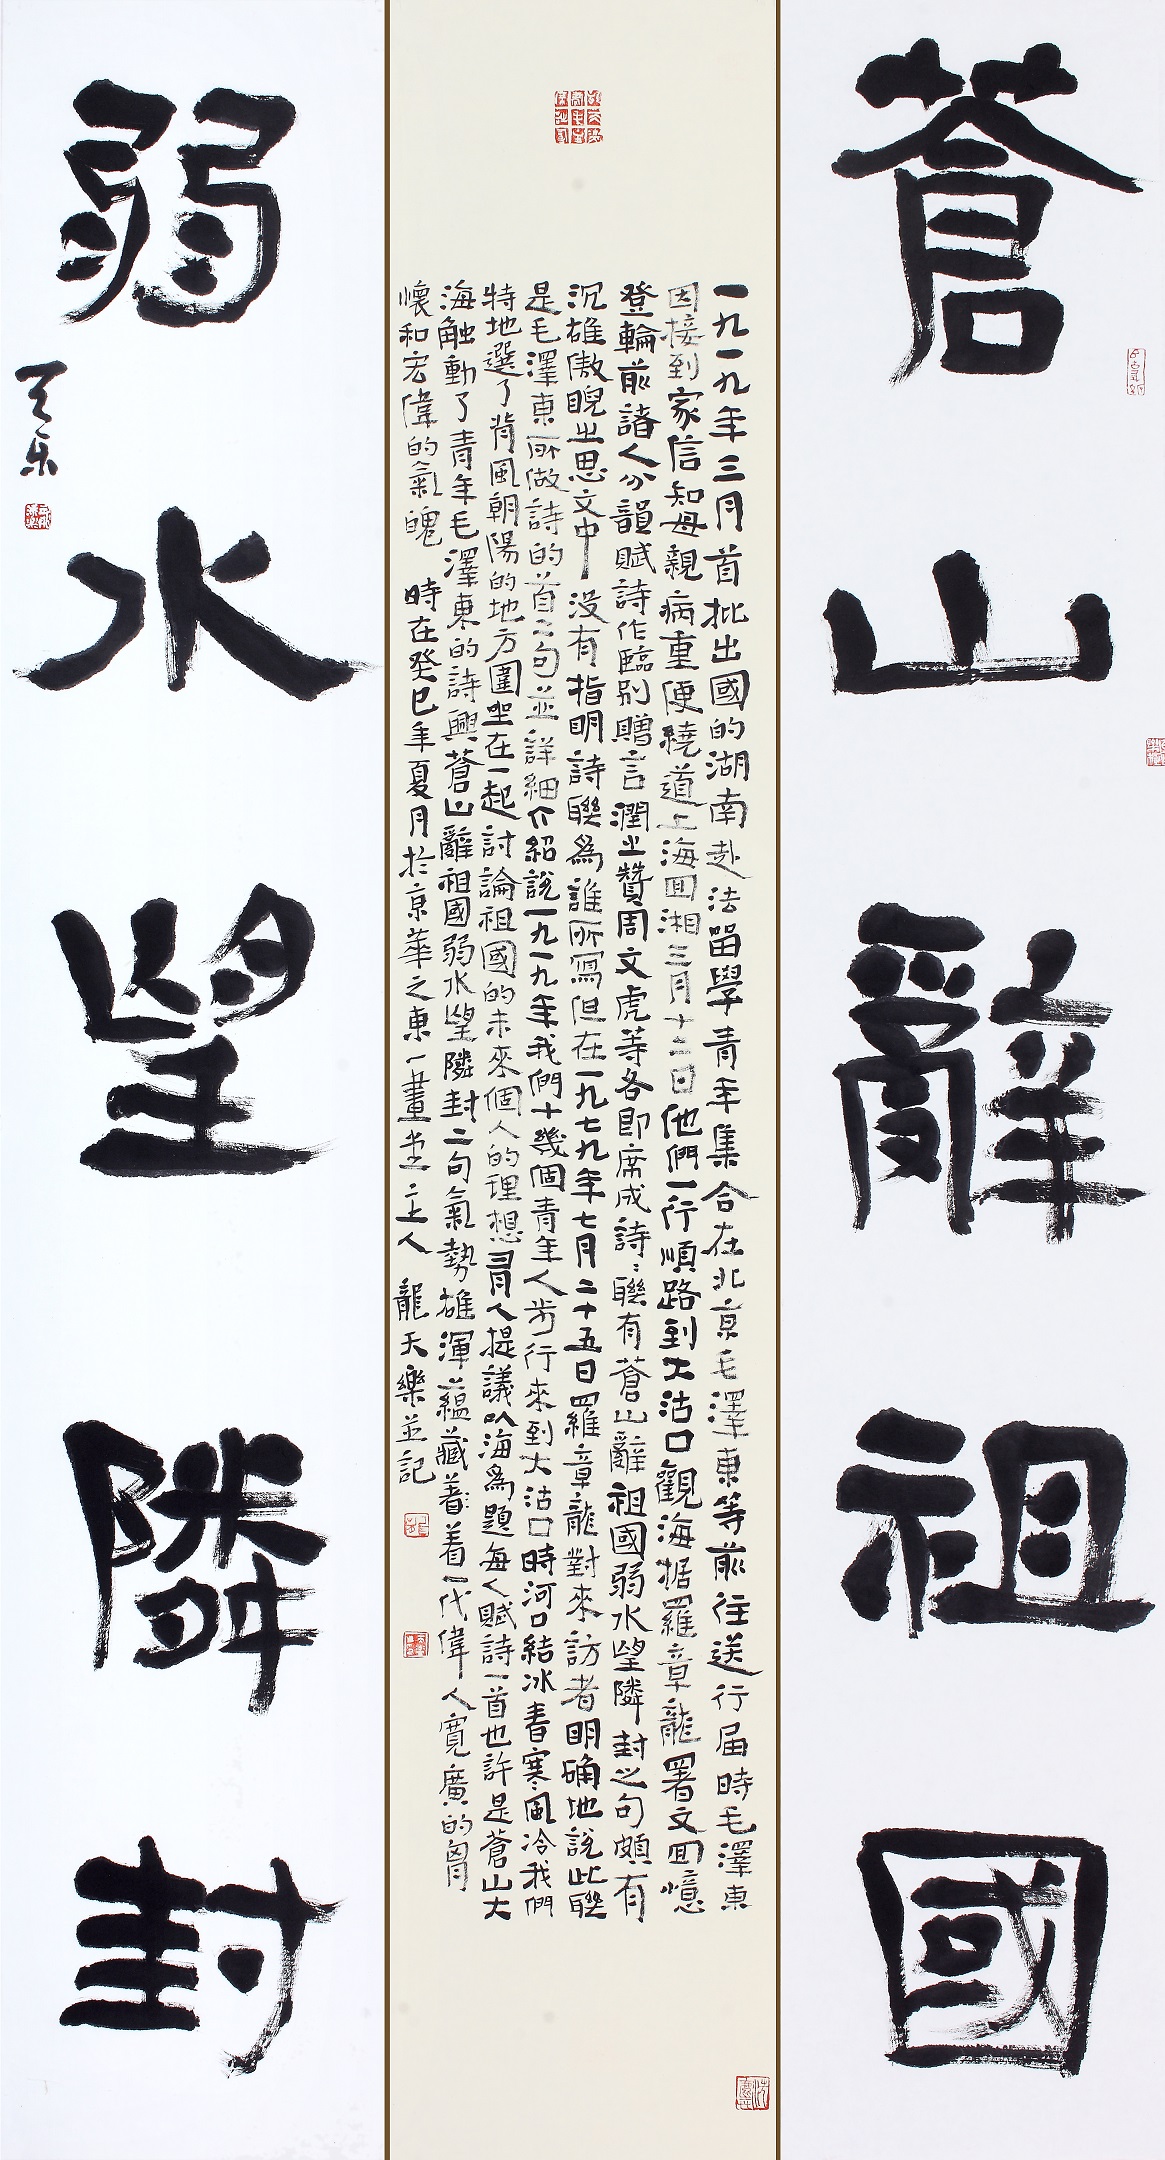 蒼山辭祖國
一九一九年三月首批出國的湖南赴法留學青年集合在北京毛澤東等前往送行届時毛澤東
因接到家信知母親病重便繞道上海回湘三月十二日他們一行順路到大沽口觀海据羅章龍署文回憶
登輪前諸人分韻賦詩作臨别贈言潤之贊周文虎等各即席成詩詩聯有蒼山辭祖國弱水望隣封之句頗有
沉雄傲睨之思文中没有指明詩聯為誰所寫但在一九七九年七月二十五日羅章龍對來訪者明确地說此聯
是毛澤東所做詩的首二句並詳細介紹說一九一九年我們十幾個青年人步行來到大沽口時河口結冰春寒風冷我們
特地選了背風朝陽的地方圍坐在一起討論祖國的未來個人的理想有人提議以海為題每人賦詩一首也許是蒼山大
海触動了青年毛澤東的詩興蒼山辭祖國弱水望隣封二句氣勢雄渾蘊藏着着一代偉人寬廣的胸
懷和宏偉的氣魄 時在癸巳年夏月於京華之東一畫堂主人 龍天樂並記
弱水望隣封
天乐